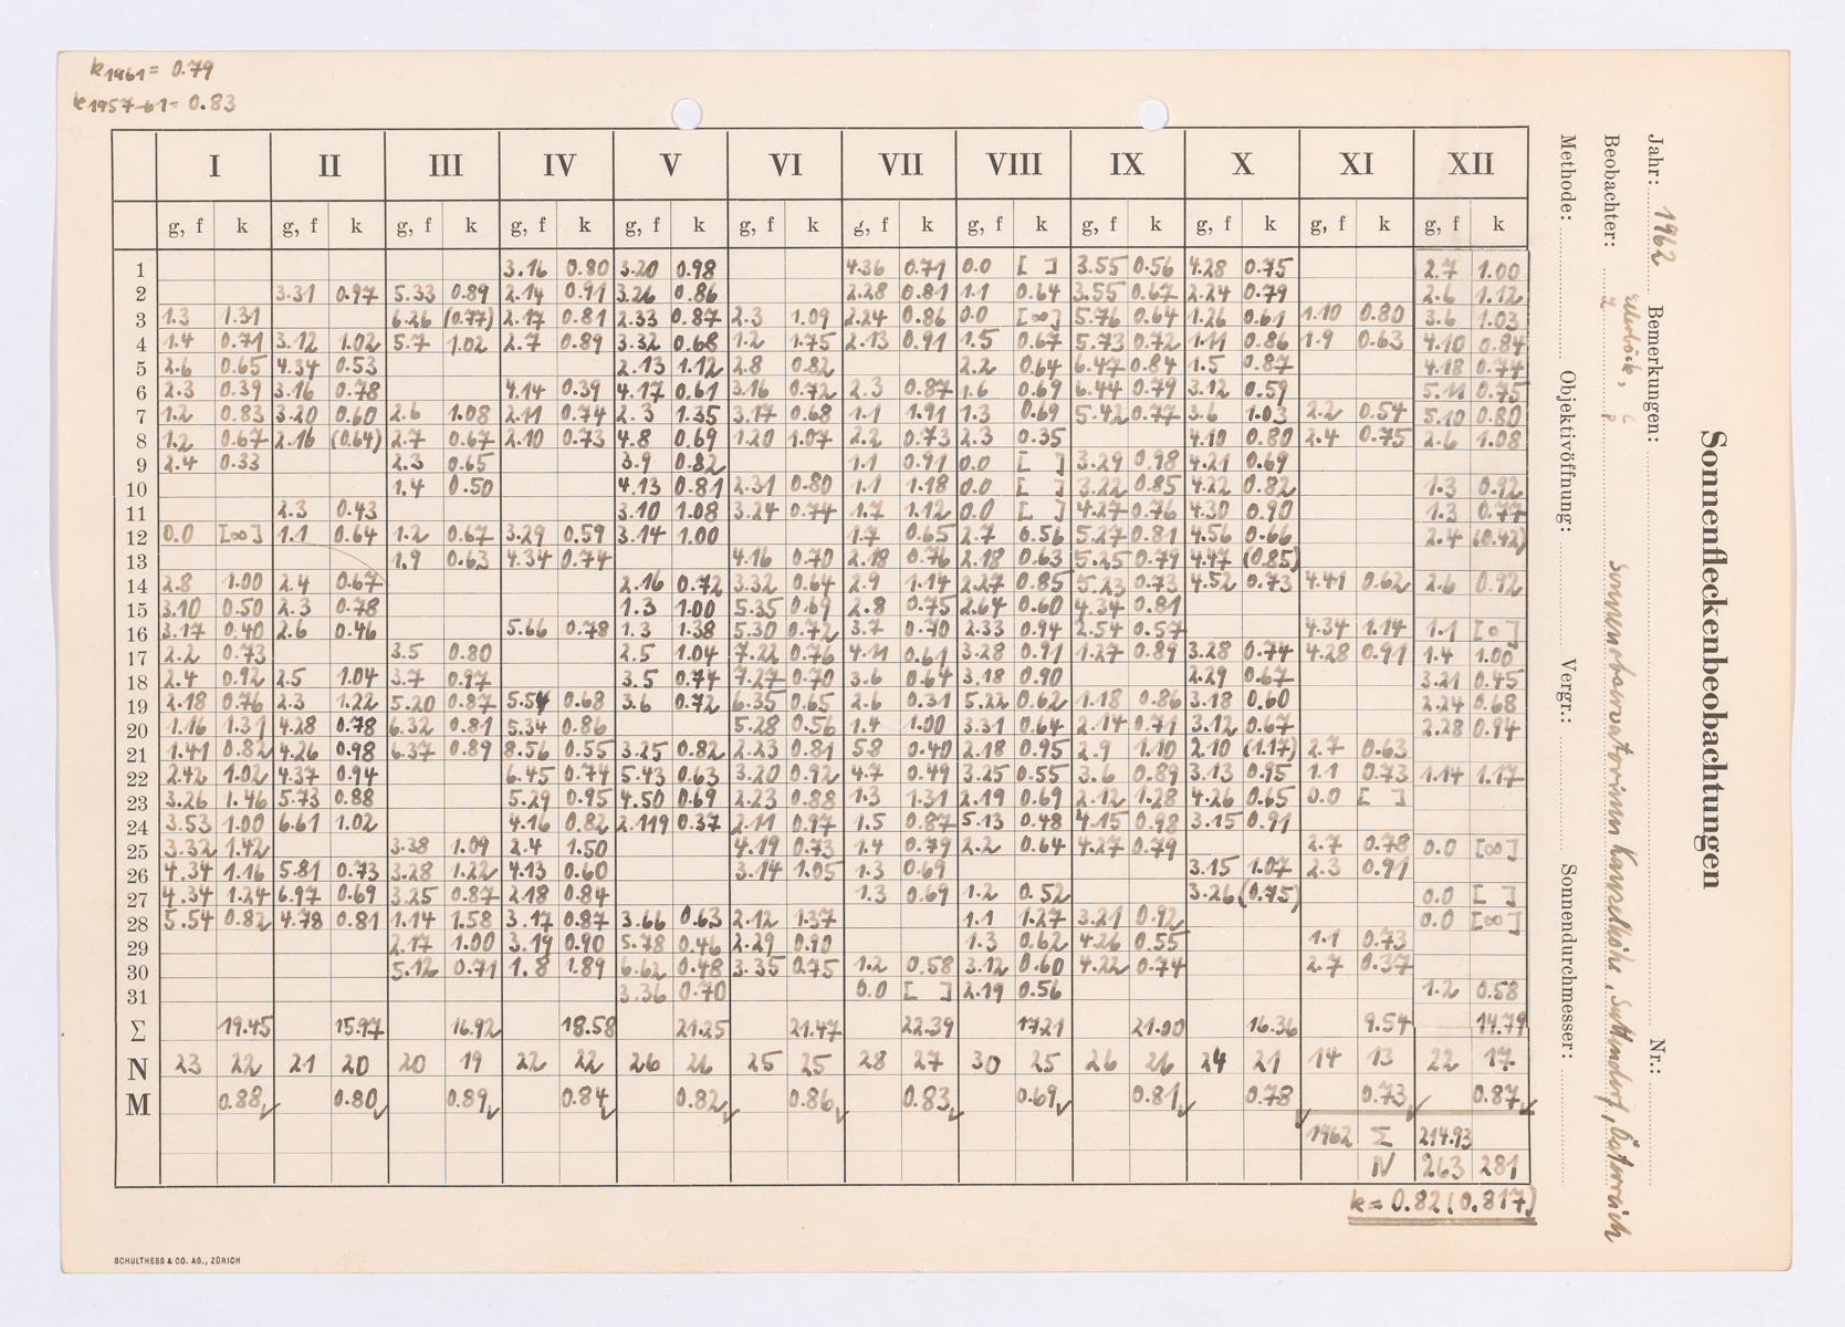 k1961 = 0.79
k1957-61 = 0.83
I II III IV V VI VII VIII IX X XI XII
g, f k g, f k g, f k g, f k g, f k g, f k g, f k g, f k g, f k g, f k g, f k g, f k
1 3.16 0.80 3.20 0.98 4.36 0.71 0.0 [ ] 3.55 0.56 4.28 0.75 2.7 1.00
2 3.31 0.97 5.33 0.89 2.14 0.91 3.26 0.86 2.28 0.81 1.1 0.64 3.55 0.67 2.24 0.79 2.6 1.12
3 1.3 1.31 6.26 (0.77) 2.17 0.81 2.33 0.87 2.3 1.09 2.24 0.86 0.0 [∞] 5.76 0.64 1.26 0.61 1.10 0.80 3.6 1.03
4 1.4 0.71 3.12 1.02 5.7 1.02 2.7 0.89 3.32 0.68 1.2 1.75 2.13 0.91 1.5 0.67 5.73 0.72 1.11 0.86 1.9 0.63 4.10 0.84
5 2.6 0.65 4.34 0.53 2.13 1.12 2.8 0.82 2.2 0.64 6.47 0.84 1.5 0.87 4.18 0.74
6 2.3 0.39 3.16 0.78 4.14 0.39 4.17 0.61 3.16 0.72 2.3 0.87 1.6 0.69 6.44 0.79 3.12 0.59 5.11 0.75
7 1.2 0.83 3.20 0.60 2.6 1.08 2.11 0.74 2.3 1.35 3.17 0.68 1.1 1.91 1.3 0.69 5.42 0.77 3.6 1.03 2.2 0.54 5.10 0.80
8 1.2 0.67 2.16 (0.64) 2.7 0.67 2.10 0.73 4.8 0.69 1.20 1.07 2.2 0.73 2.3 0.35 4.10 0.80 2.4 0.75 2.6 1.08
9 2.4 0.33 2.3 0.65 3.9 0.82 1.1 0.91 0.0 [ ] 3.29 0.98 4.21 0.69
10 1.4 0.50 4.13 0.81 2.31 0.80 1.1 1.18 0.0 [ ] 3.22 0.85 4.22 0.82 1.3 0.92
11 2.3 0.43 3.10 1.08 3.24 0.74 1.7 1.12 0.0 [ ] 4.27 0.76 4.30 0.90 1.3 0.77
12 0.0 [∞] 1.1 0.64 1.2 0.67 3.29 0.59 3.14 1.00 1.7 0.65 2.7 0.56 5.27 0.81 4.56 0.66 2.4 (0.42)
13 1.9 0.63 4.34 0.74 4.16 0.70 2.18 0.76 2.18 0.63 5.25 0.79 4.47 (0.85)
14 2.8 1.00 2.4 0.67 2.16 0.72 3.32 0.64 2.9 1.14 2.27 0.85 5.23 0.73 4.52 0.73 4.41 0.62 2.6 0.92
15 3.10 0.50 2.3 0.78 1.3 1.00 5.35 0.69 2.8 0.75 2.64 0.60 4.34 0.81
16 3.17 0.40 2.6 0.46 5.66 0.78 1.3 1.38 5.30 0.72 3.7 0.70 2.33 0.94 2.54 0.57 4.34 1.14 1.1 [0]
17 2.2 0.73 3.5 0.80 2.5 1.04 7.22 0.76 4.11 0.61 3.28 0.91 1.27 0.89 3.28 0.74 4.28 0.91 1.4 1.00
18 2.4 0.92 2.5 1.04 3.7 0.97 3.5 0.74 7.27 0.70 3.6 0.64 3.18 0.90 2.29 0.67 3.21 0.45
19 2.18 0.76 2.3 1.22 5.20 0.87 5.54 0.68 3.6 0.72 6.35 0.65 2.6 0.31 5.22 0.62 1.18 0.86 3.18 0.60 2.24 0.68
20 1.16 1.31 4.28 0.78 6.32 0.81 5.34 0.86 5.28 0.56 1.4 1.00 3.31 0.64 2.14 0.71 3.12 0.67 2.28 0.94
21 1.41 0.82 4.26 0.98 6.37 0.89 8.56 0.55 3.25 0.82 2.23 0.81 5.8 0.40 2.18 0.95 2.9 1.10 2.10 (1.17) 2.7 0.63
22 2.42 1.02 4.37 0.94 6.45 0.74 5.43 0.63 3.20 0.92 4.7 0.49 3.25 0.55 3.6 0.89 3.13 0.95 1.1 0.73 1.14 1.17
23 3.26 1.46 5.73 0.88 5.29 0.95 4.50 0.69 2.23 0.88 1.3 1.31 2.19 0.69 2.12 1.28 4.26 0.65 0.0 [ ]
24 3.53 1.00 6.61 1.02 4.16 0.82 2.119 0.37 2.11 0.97 1.5 0.87 5.13 0.48 4.15 0.98 3.15 0.91
25 3.32 1.42 3.38 1.09 2.4 1.50 4.19 0.73 1.4 0.79 2.2 0.64 4.27 0.79 2.7 0.78 0.0 [∞]
26 4.34 1.16 5.81 0.73 3.28 1.22 4.13 0.60 3.14 1.05 1.3 0.69 3.15 1.07 2.3 0.91
27 4.34 1.24 6.97 0.69 3.25 0.87 2.18 0.84 1.3 0.69 1.2 0.52 3.26 (0.75) 0.0 [ ]
28 5.54 0.82 4.78 0.81 1.14 1.58 3.17 0.87 3.66 0.63 2.12 1.37 1.1 1.27 3.21 0.92 0.0 [∞]
29 2.17 1.00 3.19 0.90 5.78 0.46 2.29 0.90 1.3 0.62 4.26 0.55 1.1 0.73
30 5.12 0.71 1.8 1.89 6.62 0.48 3.35 0.75 1.2 0.58 3.12 0.60 4.22 0.74 2.7 0.37
31 3.36 0.70 0.0 [ ] 2.19 0.56 1.2 0.58
Σ 19.45 15.97 16.92 18.58 21.25 21.47 22.39 17.21 21.00 16.36 9.54 14.79
N 23 22 21 20 20 19 22 22 26 26 25 25 28 27 30 25 26 26 24 21 14 13 22 17
M 0.88 0.80 0.89 0.84 0.82 0.86 0.83 0.69 0.81 0.78 0.73 0.87
1962 Σ 214.93
N 263 281
k = 0.82 (0.817)
SCHULTHESS & CO. AG., ZÜRICH
Sonnenfleckenbeobachtungen
Jahr: 1962 Bemerkungen: Nr.:
Beobachter: Sonnenobservatorium Kanzelhöhe, Sattendorf, Österreich
Methode: Objektivöffnung: Vergr.: Sonnendurchmesser: